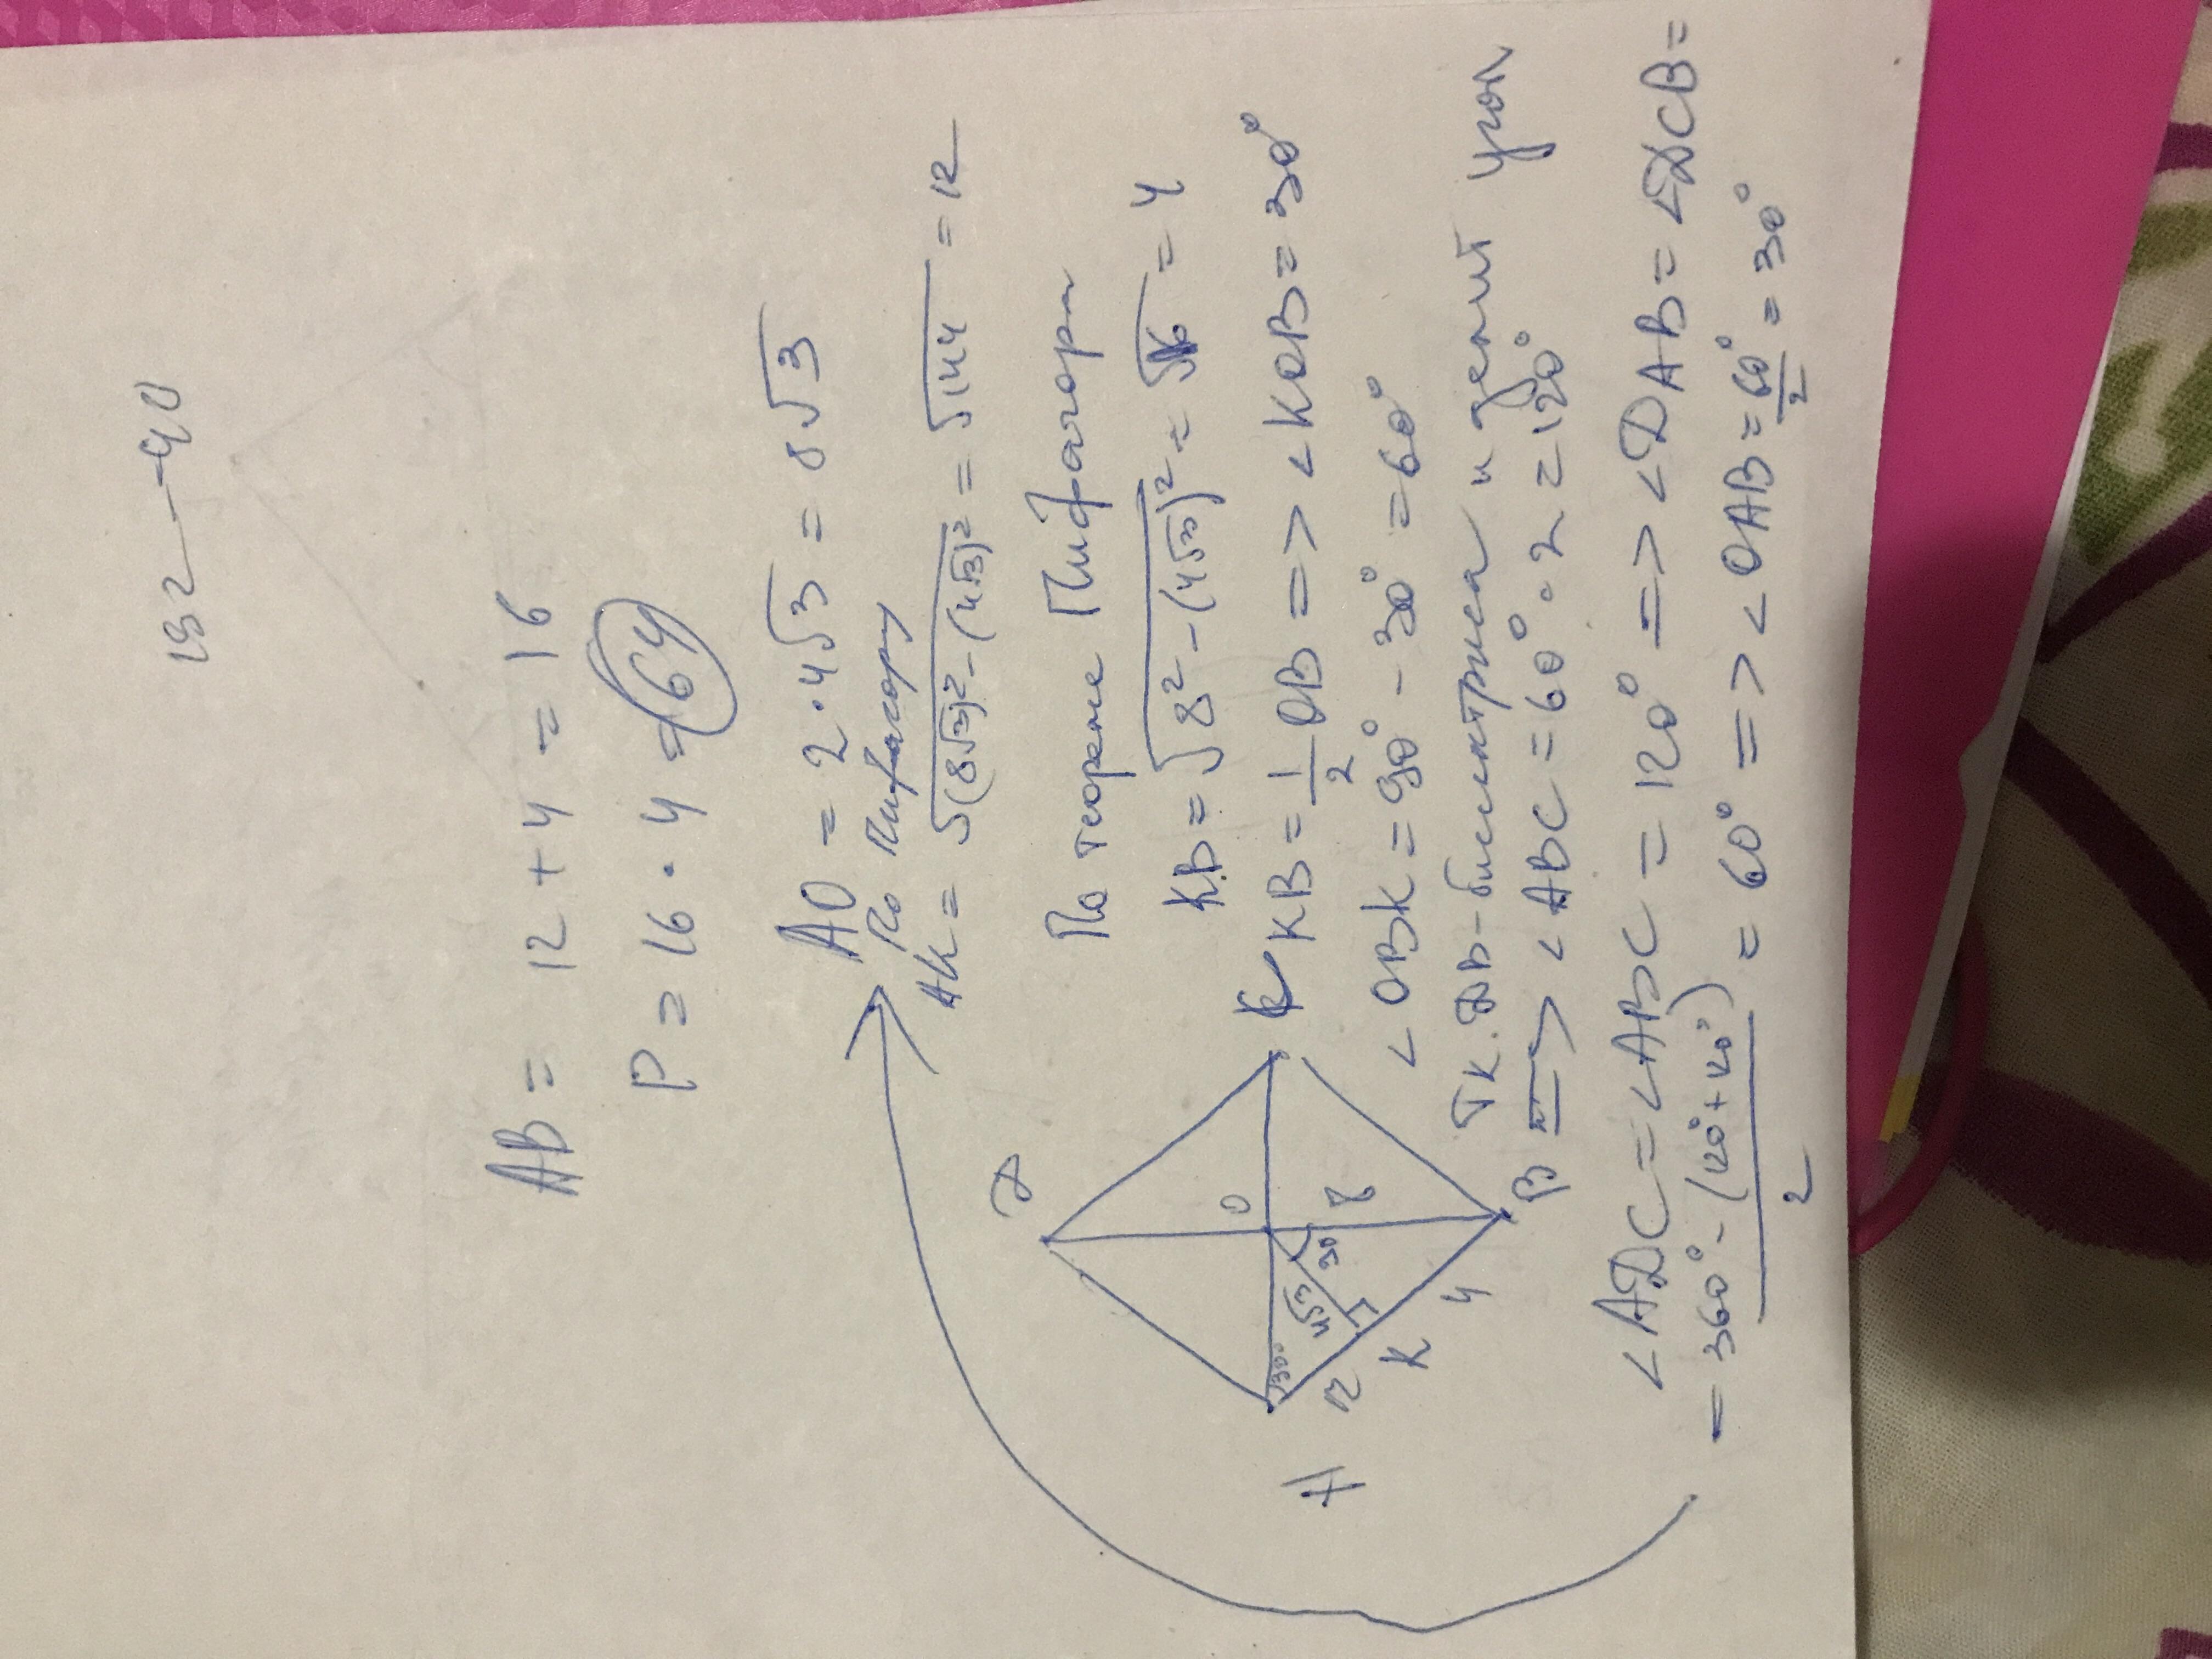 192 - 40
AB = 12 + 4 = 16
P = 16 · 4 = 64
AO = 2 · 4√3 = 8√3
По Пифагору
AK = √(8√3)² - (4√3)² = √144 = 12
По теореме Пифагора
KB = √8² - (4√3)² = √16 = 4
KB = 1/2 OB => <KOB = 30°
<OBK = 90° - 30° = 60°
Тк. DB - биссектриса и делит угол
B => <ABC = 60° · 2 = 120°
<ADC = <ABC = 120° => <DAB = <DCB =
= 360° - (120° + 120°) / 2 = 60° => <OAB = 60°/2 = 30°
D
O
C
8
30
4√3
30°
A
12
K
4
B